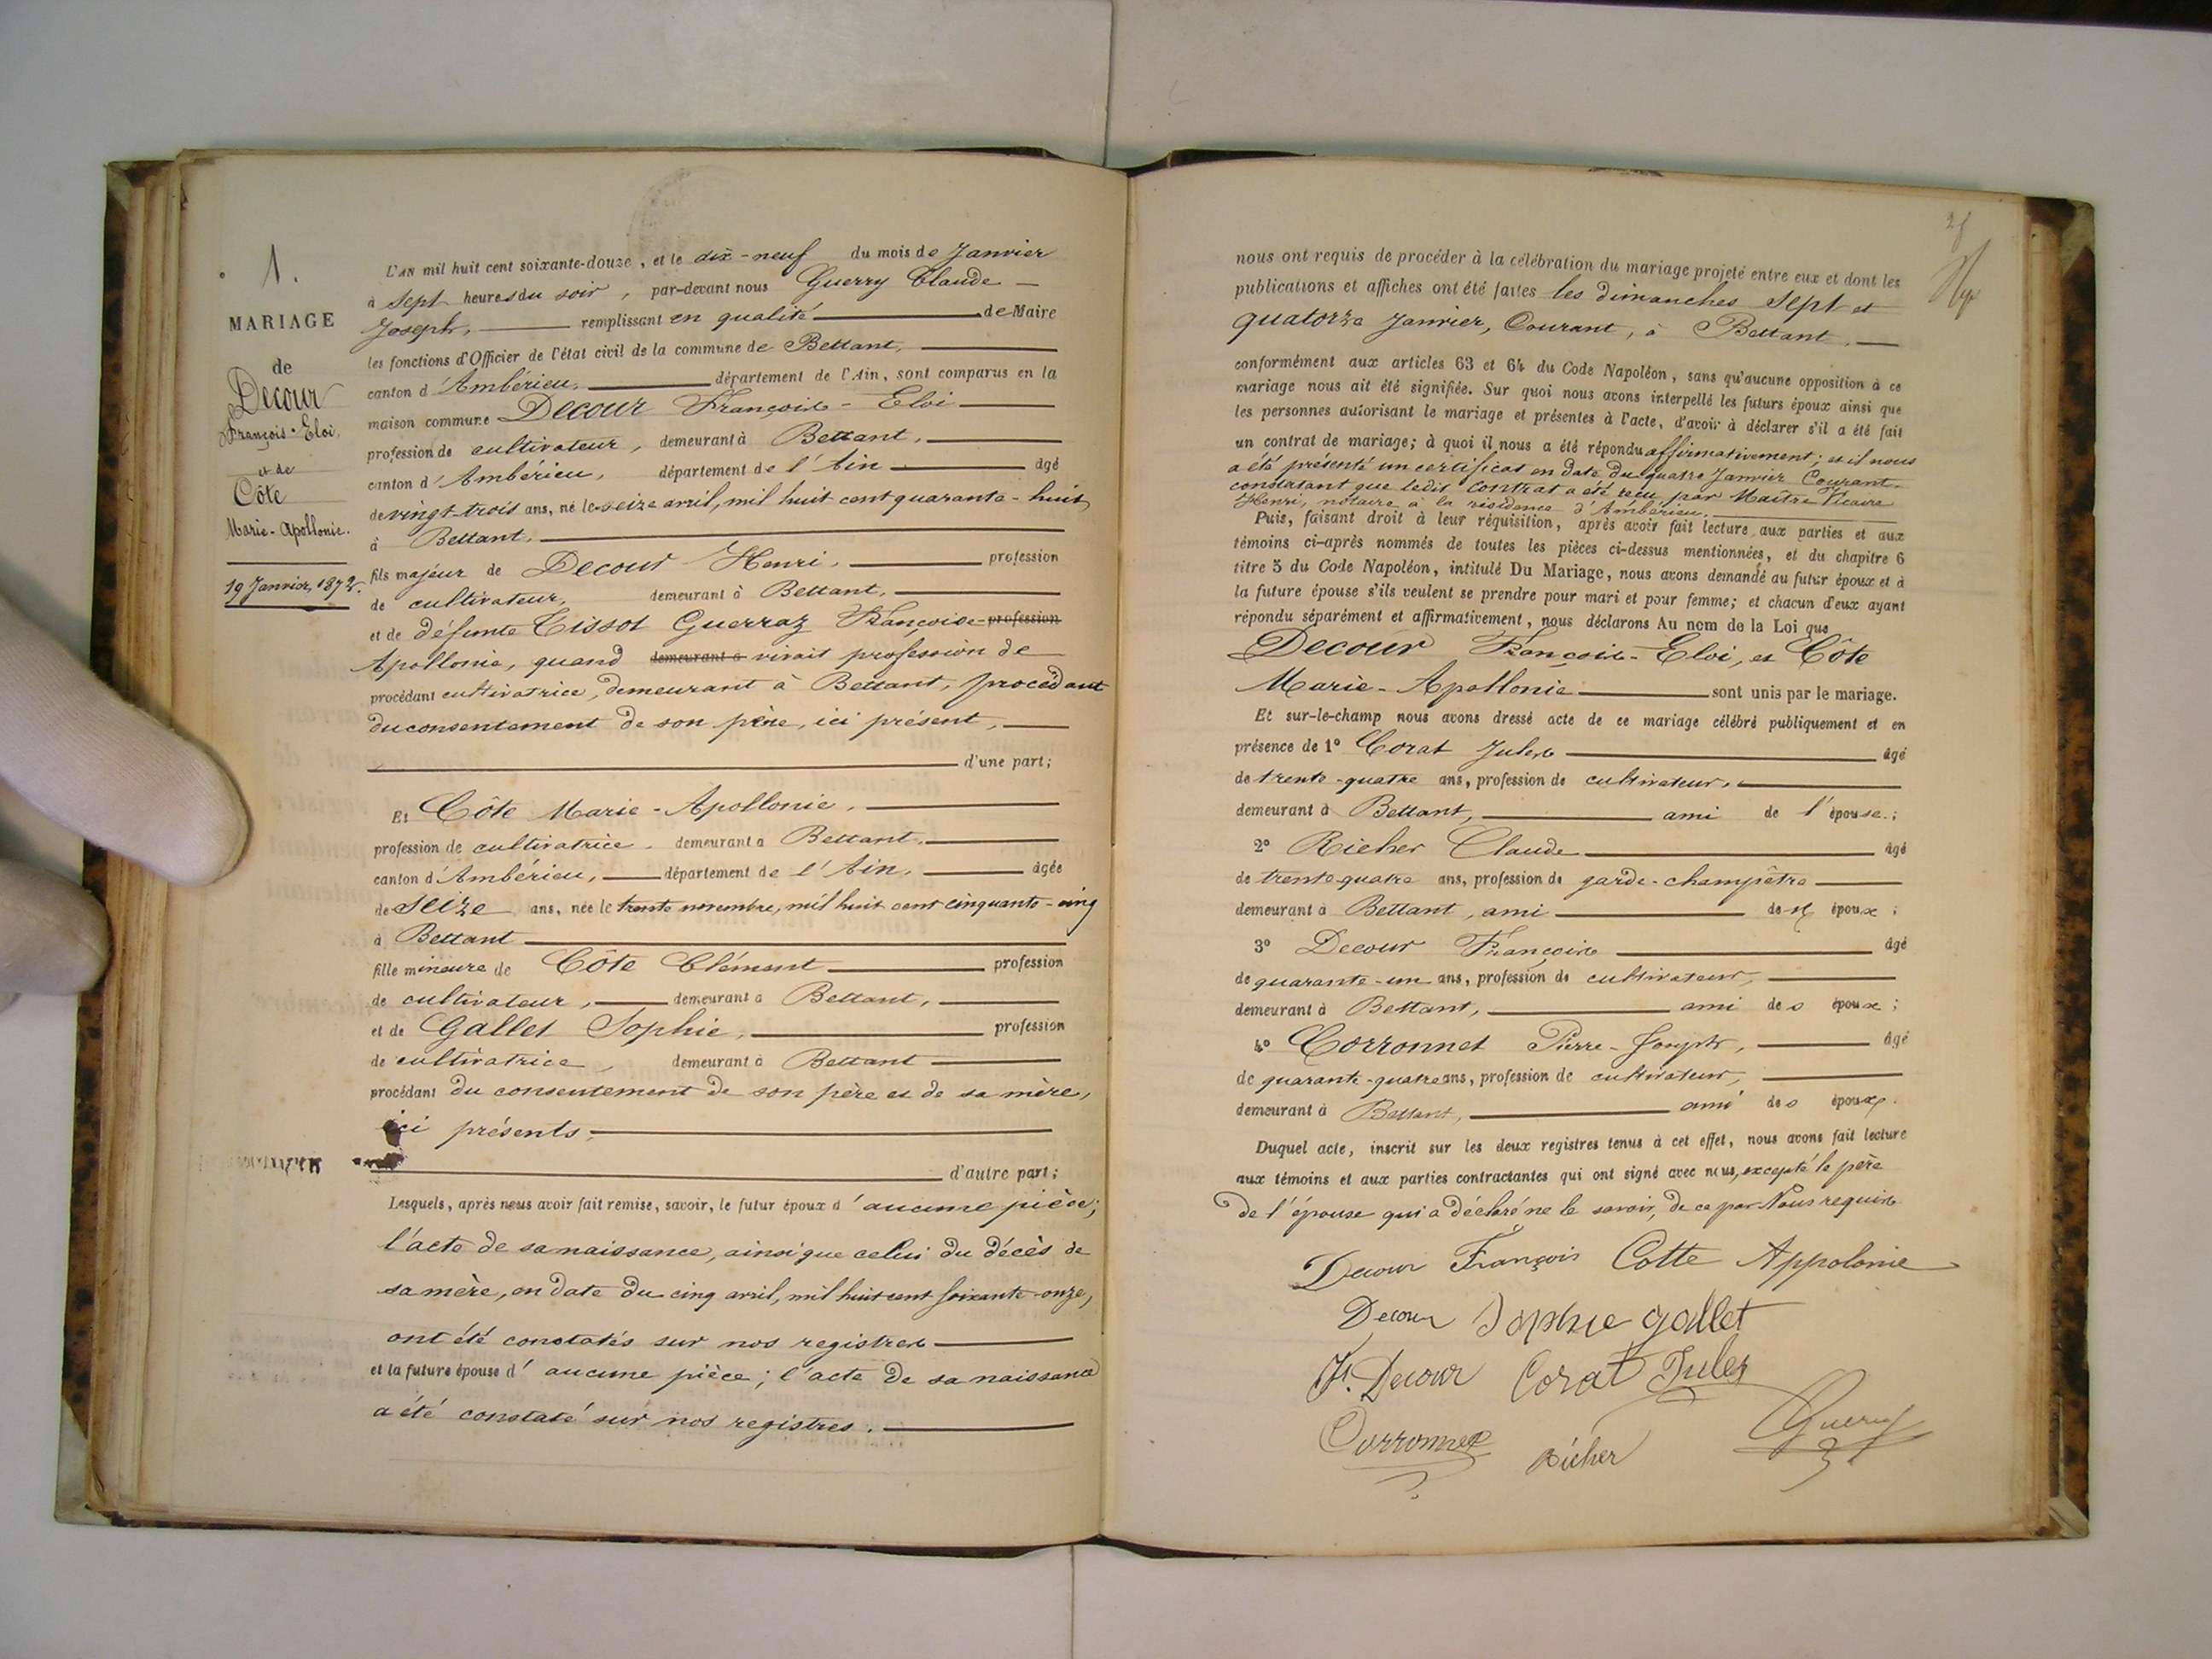 1.
MARIAGE
de
Decour
François-Eloi,
et de
Côte
Marie-Apollonie.
19 Janvier, 1872.
L'AN mil huit cent soixante-douze, et le dix-neuf du mois de Janvier
à Sept heures du soir, par-devant nous Guerry Claude
Joseph, remplissant en qualité de Maire
les fonctions d'Officier de l'état civil de la commune de Bettant,
canton d'Ambérieu, département de l'Ain, sont comparus en la
maison commune Decour François-Eloi
profession de cultivateur, demeurant à Bettant,
canton d'Ambérieu, département de l'Ain âgé
de vingt-trois ans, né le seize avril, mil huit cent quarante-huit,
à Bettant,
fils majeur de Decour Henri, profession
de cultivateur, demeurant à Bettant,
et de défunte Tissot Guerraz Françoise-profession
Apollonie, quand demeurant à vivait profession de
procédant cultivatrice, demeurant à Bettant, procédant
du consentement de son père, ici présent,
d'une part;
Et Côte Marie-Apollonie,
profession de cultivatrice, demeurant à Bettant,
canton d'Ambérieu, département de l'Ain, âgée
de seize ans, née le trente novembre, mil huit cent cinquante-cinq
à Bettant
fille mineure de Côte Clément profession
de cultivateur, demeurant à Bettant,
et de Gallet Sophie, profession
de cultivatrice, demeurant à Bettant
procédant du consentement de son père et de sa mère,
ici présents,
d'autre part;
Lesquels, après nous avoir fait remise, savoir, le futur époux d'aucune pièce;
l'acte de sa naissance, ainsi que celui du décès de
sa mère, en date du cinq avril, mil huit cent soixante-onze,
ont été constatés sur nos registres
et la future épouse d'aucune pièce; l'acte de sa naissance
a été constaté sur nos registres.
nous ont requis de procéder à la célébration du mariage projeté entre eux et dont les
publications et affiches ont été faites les dimanches Sept et
quatorze Janvier, Courant, à Bettant,
conformément aux articles 63 et 64 du Code Napoléon, sans qu'aucune opposition à ce
mariage nous ait été signifiée. Sur quoi nous avons interpellé les futurs époux ainsi que
les personnes autorisant le mariage et présentes à l'acte, d'avoir à déclarer s'il a été fait
un contrat de mariage; à quoi il nous a été répondu affirmativement; et il nous
a été présenté un certificat en date du quatre Janvier Courant,
constatant que ledit Contrat a été reçu par Maître Vicaire
Henri, notaire à la résidence d'Ambérieu.
Puis, faisant droit à leur réquisition, après avoir fait lecture aux parties et aux
témoins ci-après nommés de toutes les pièces ci-dessus mentionnées, et du chapitre 6
titre 5 du Code Napoléon, intitulé Du Mariage, nous avons demandé au futur époux et à
la future épouse s'ils veulent se prendre pour mari et pour femme; et chacun d'eux ayant
répondu séparément et affirmativement, nous déclarons Au nom de la Loi que
Decour François-Eloi, et Côte
Marie-Apollonie sont unis par le mariage.
Et sur-le-champ nous avons dressé acte de ce mariage célébré publiquement et en
présence de 1° Corat Jules âgé
de trente-quatre ans, profession de cultivateur,
demeurant à Bettant, ami de l'épouse.;
2° Richer Claude âgé
de trente-quatre ans, profession de garde-champêtre
demeurant à Bettant, ami des époux;
3° Decour François âgé
de quarante-un ans, profession de cultivateur,
demeurant à Bettant, ami des époux;
4° Corronnet Pierre-Joseph, âgé
de quarante-quatre ans, profession de cultivateur,
demeurant à Bettant, ami des époux.
Duquel acte, inscrit sur les deux registres tenus à cet effet, nous avons fait lecture
aux témoins et aux parties contractantes qui ont signé avec nous, excepté le père
de l'épouse qui a déclaré ne le savoir, de ce par Nous requis
Decour François Cotte Appolonie
Decour Sophie gallet
Fs. Decour Corat Jules
Corronnet Richer Guerry